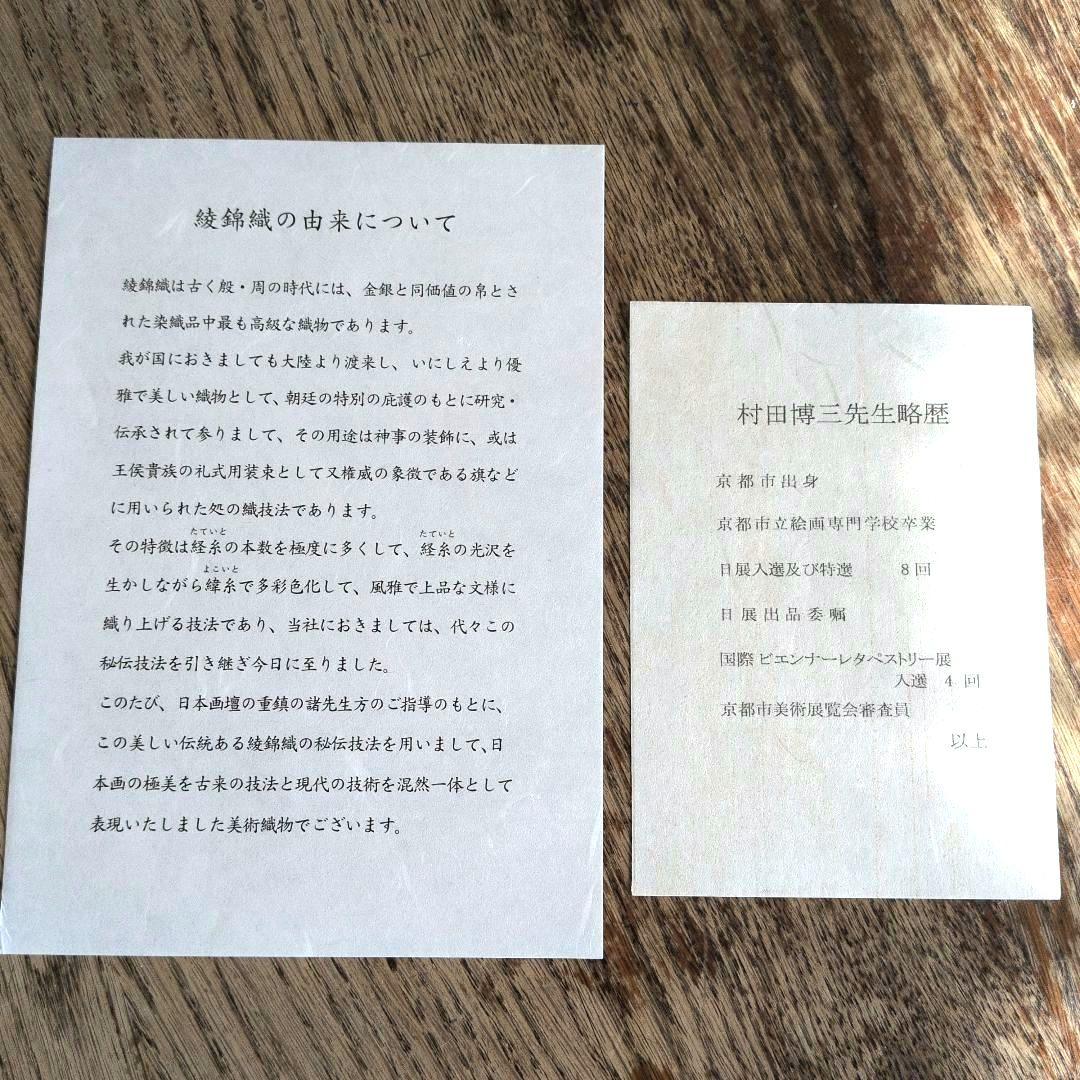 綾錦織の由来について
綾錦織は古く殷・周の時代には、金銀と同価値の帛とさ
れた染織品中最も高級な織物であります。
我が国におきましても大陸より渡来し、いにしえより優
雅で美しい織物として、朝廷の特別の庇護のもとに研究・
伝承されて参りまして、その用途は神事の装飾に、或は
王侯貴族の礼式用装束として又権威の象徴である旗など
に用いられた処の織技法であります。
たていと たていと
その特徴は経糸の本数を極度に多くして、経糸の光沢を
よこいと
生かしながら緯糸で多彩色化して、風雅で上品な文様に
織り上げる技法であり、当社におきましては、代々この
秘伝技法を引き継ぎ今日に至りました。
このたび、日本画壇の重鎮の諸先生方のご指導のもとに、
この美しい伝統ある綾錦織の秘伝技法を用いまして、日
本画の極美を古来の技法と現代の技術を混然一体として
表現いたしました美術織物でございます。
村田博三先生略歴
京都市出身
京都市立絵画専門学校卒業
日展入選及び特選 8回
日展出品委嘱
国際ビエンナーレタペストリー展
入選 4回
京都市美術展覧会審査員
以上